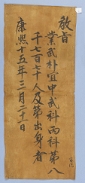 敎旨
業武科宜申武科丙科第八
千七百七十人及第出身者
康熙十五年三月二十一日